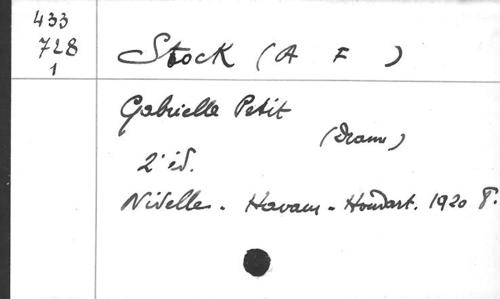 433
728
1
Stock (A F )
Gabrielle Petit
(Drame)
2e éd.
Nivelles - Havaux - Houdart. 1920 P.